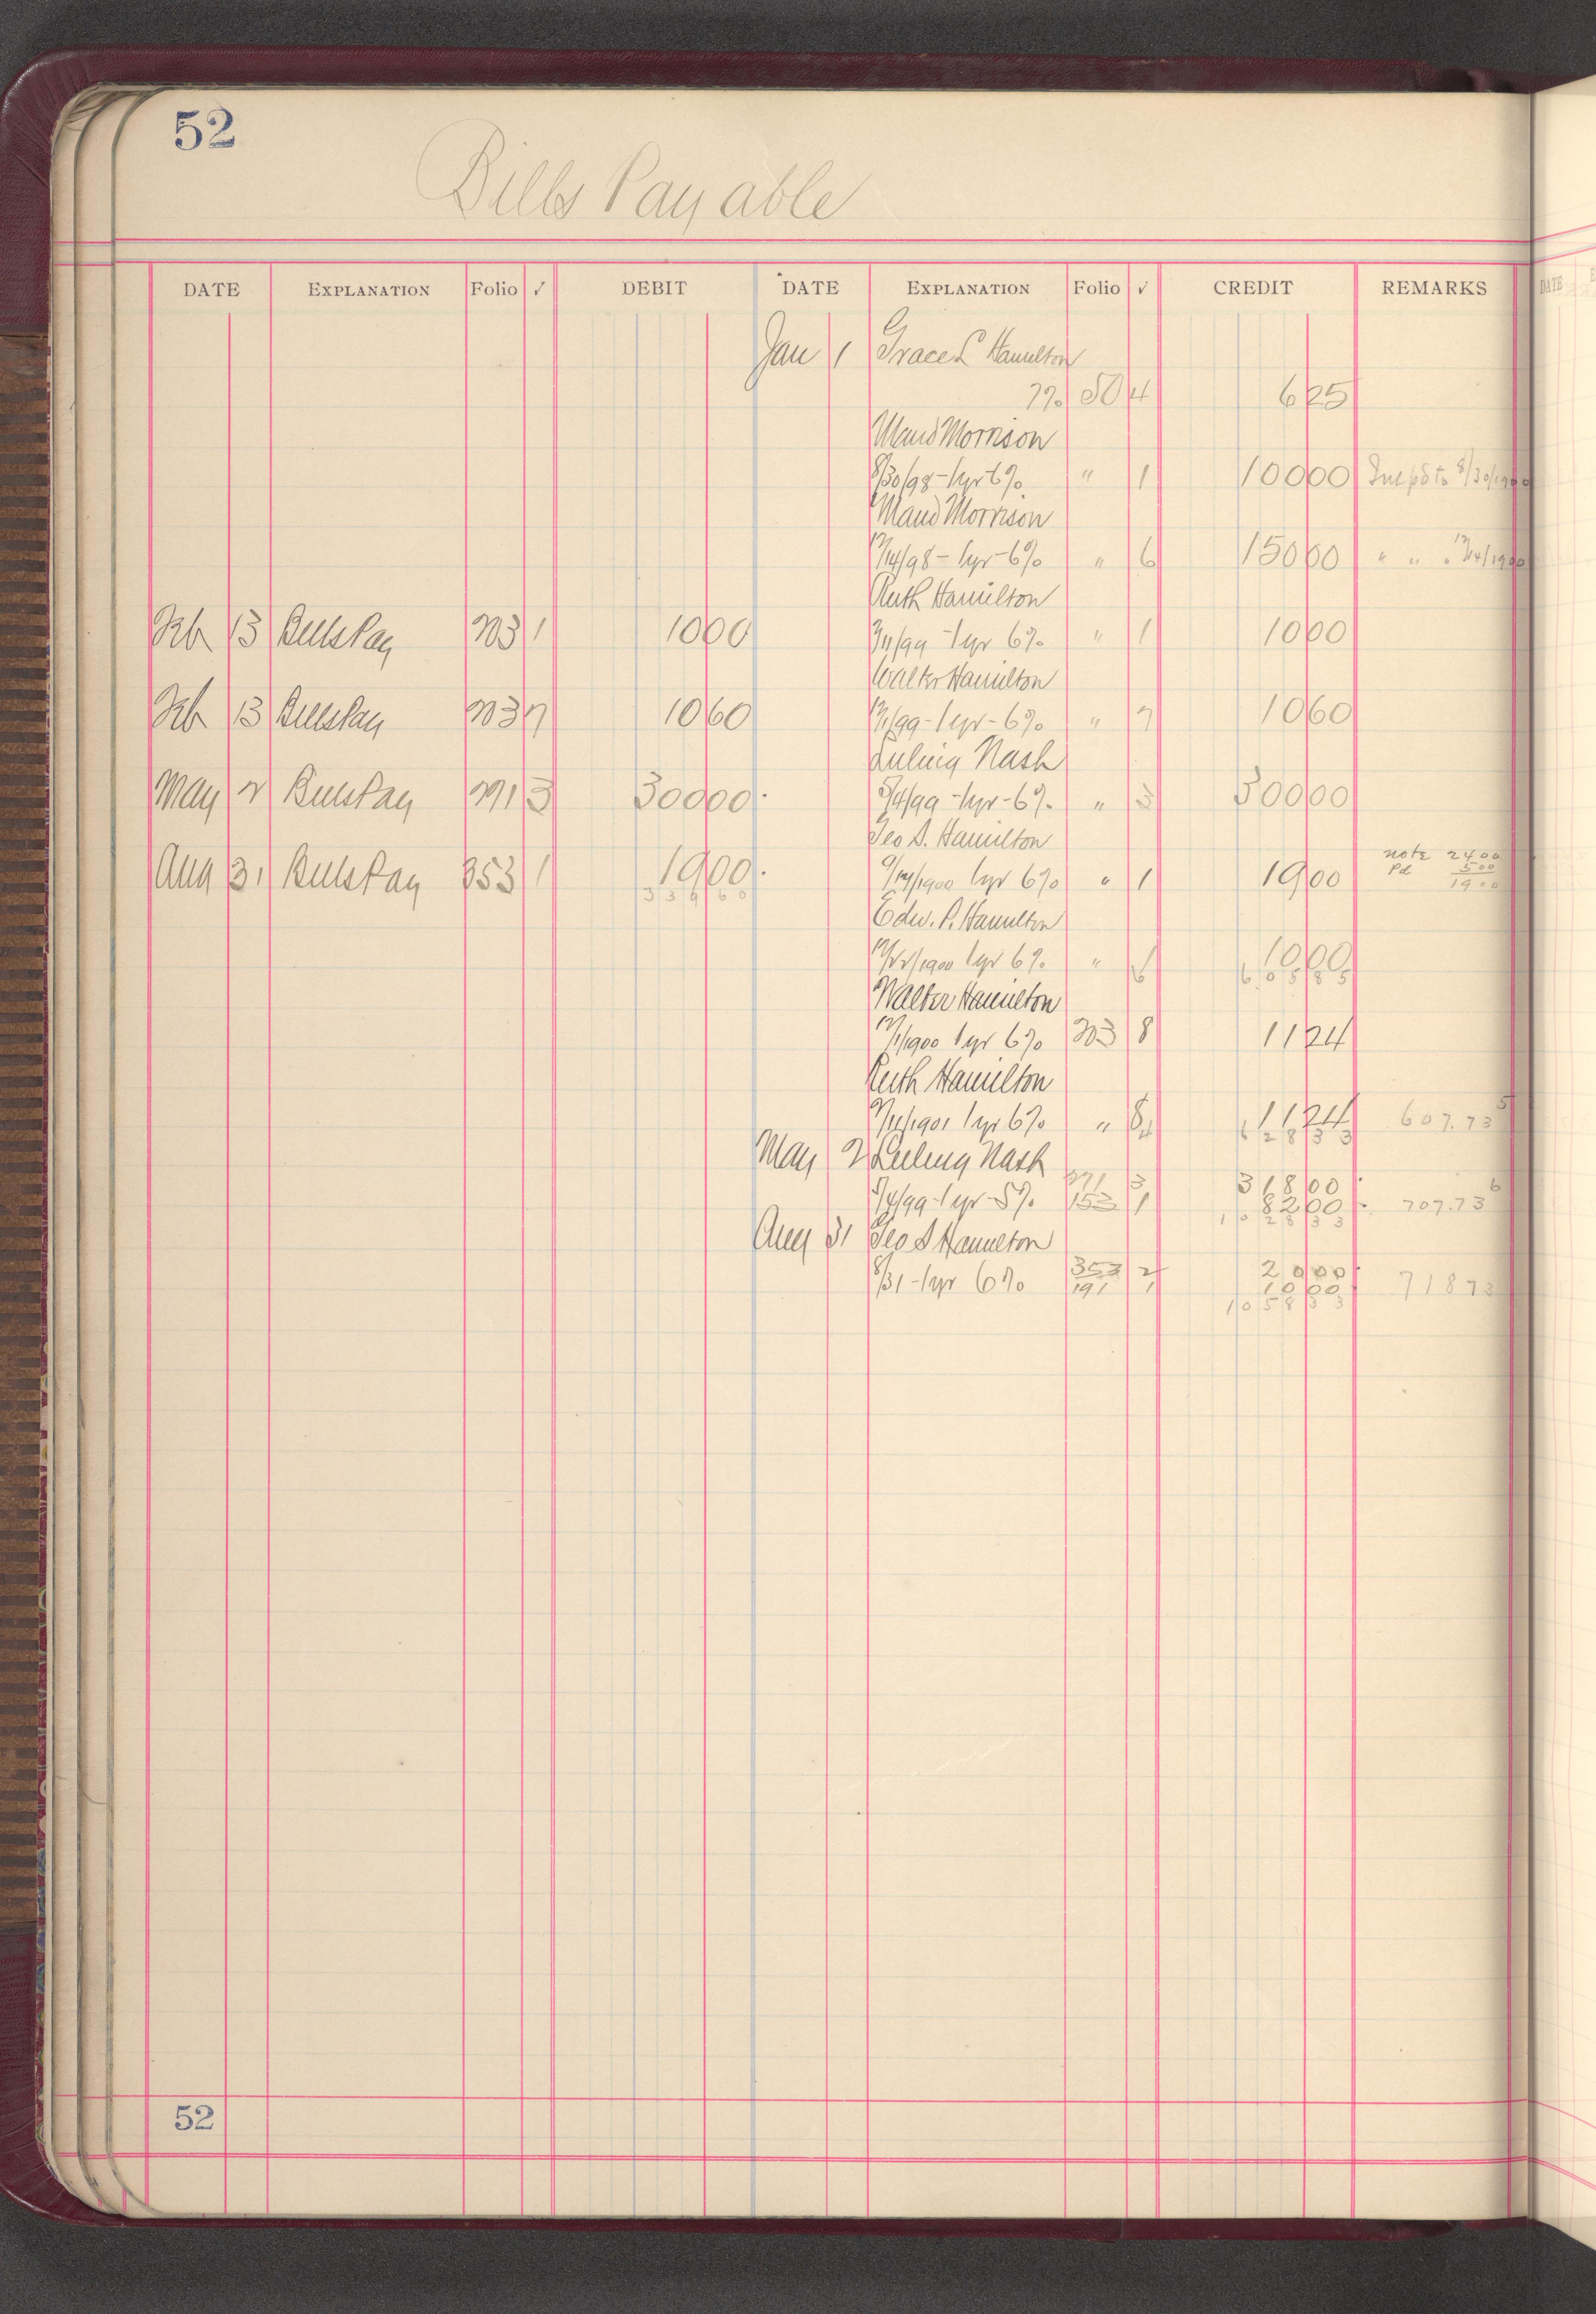 52
Bills Payable
DATE EXPLANATION Folio ✓ DEBIT DATE EXPLANATION Folio ✓ CREDIT REMARKS
Jan 1 Grace L Hamilton
7% 50 4 625
Maud Morrison
8/30/98 - 1yr 6% " 1 10000 Int pd to 8/30/1900
Maud Morrison
12/14/98 - 1yr - 6% " 6 15000 " " " 12/14/1900
Ruth Hamilton
Feb 13 Bills Pay 203 1 1000 1yr 6% " 1 1000
Walter Hamilton
Feb 13 Bills Pay 203 7 1060 12/1/99 - 1yr - 6% " 7 1060
Luling Nash
May 2 Bills Pay 291 3 30000 5/4/99 - 1yr - 6% " 3 30000
Geo S. Hamilton
note 2400
Aug 31 Bills Pay 353 1 1900 1yr 6% " 1 1900 Pd 500
33960 1900
Edw. P. Hamilton
1yr 6% " 6 1000
60585
Walter Hamilton
12/1/1900 1yr 6% 203 8 1124
Ruth Hamilton
1yr 6% " 8 1124 607.73
62833
May 2 Luling Nash
291 3 31800
5/4/99 - 1yr - 5% 153 1 8200 707.73
102833
Aug 31 Geo S Hamilton
8/31 - 1yr 6% 353 2 2000
191 1 1000 71873
105833
52